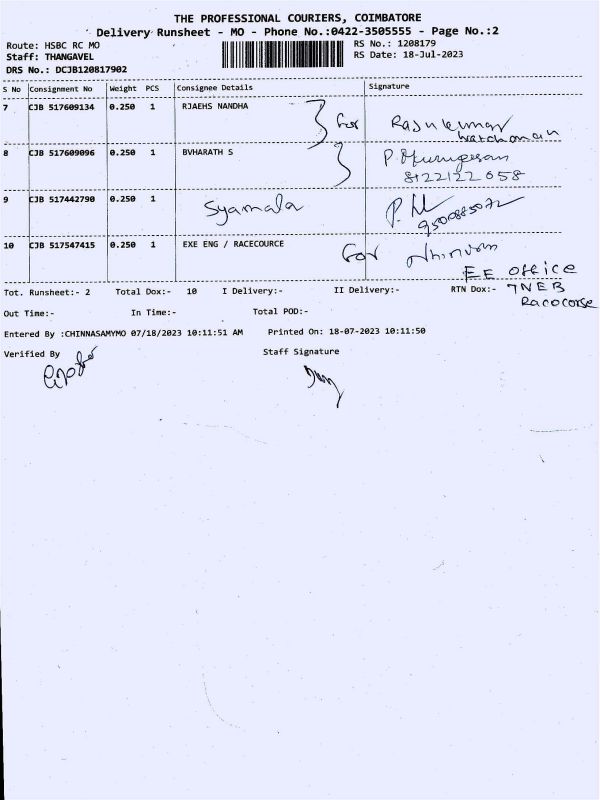 THE PROFESSIONAL COURIERS, COIMBATORE
Delivery Runsheet - MO - Phone No.:0422-3505555 - Page No.:2
Route: HSBC RC MO RS No.: 1208179
Staff: THANGAVEL RS Date: 18-Jul-2023
DRS No.: DCJB120817902
S No Consignment No Weight PCS Consignee Details Signature
7 CJB 517609134 0.250 1 RJAEHS NANDHA
for Rajukumar
watchman
8 CJB 517609096 0.250 1 BVHARATH S
P. Murugesan
8122122058
9 CJB 517442790 0.250 1 Syamala
9500885072
10 CJB 517547415 0.250 1 EXE ENG / RACECOURCE
for
EE office
Tot. Runsheet:- 2 Total Dox:- 10 I Delivery:- II Delivery:- RTN Dox:- TNEB
Racocorse
Out Time:- In Time:- Total POD:-
Entered By :CHINNASAMYMO 07/18/2023 10:11:51 AM Printed On: 18-07-2023 10:11:50
Verified By Staff Signature